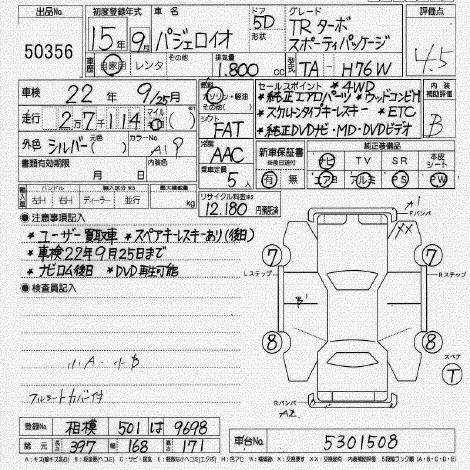 出品No. 初度登録年式 車名 ドア グレード 評価点
50356 15年 9月 パジェロイオ 5D TRターボ スポーティパッケージ 4.5
形状
車歴 自家用 レンタ その他( ) 排気量 1.800cc 型式 TA-H76W
車検 22年 9/25月 燃料 ガソリン・軽油 その他( ) セールスポイント *4WD 内装補助評価 B
*純正エアロパーツ *ウッドコンビH
走行 27114 マイル km *スケルトンタイプキーレス *ETC
シフト FAT *純正DVDナビ・MD・DVDビデオ
外色 シルバー 元色( ) カラーNo. A19 内装色
冷房 AAC 新車保証書 有 無 純正装備品
ナビ TV SR 本皮シート
エアB アルミ PS PW
書類有効期限 月 日 乗車定員 5人
輸入車 ハンドル 輸入区分 最大積載量
右H 左H ディーラー 並行 kg
リサイクル料金 12.180 円預託済
●注意事項記入
*ユーザー買取車 *スペアキーレスキーあり(後日)
*車検22年9月25日まで
*ナビロム後日 *DVD再生可能
●検査員記入
小A・小B
フルシートカバー付
A1
Fバンパ
XX
7 7
Lステップ Rステップ
B'
8 8
スペア
T
Rバンパ
A2
登録No. 相模 501 は 9698
諸元 長さ 397 幅 168 高さ 171
車台No. 5301508